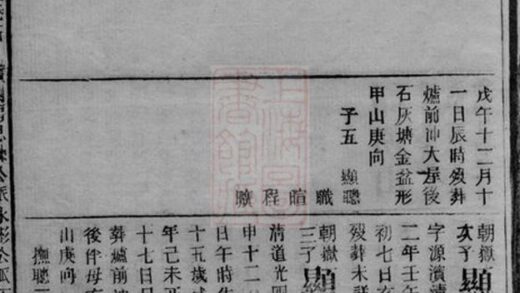 戊午十二月十
一日辰時歿葬
爐前冲大屋後
石灰塘金盆形
甲山庚向
子五 顯聰
職 暄 程 曠
朝嶽
次子 顯
字源濱
二年壬午
初七日亥
歿葬未詳
朝嶽
三子 顯
清道光
申十二
日午時生
十五歲
年己未
十七日
葬爐前
後伴母
山庚向
撫聰三